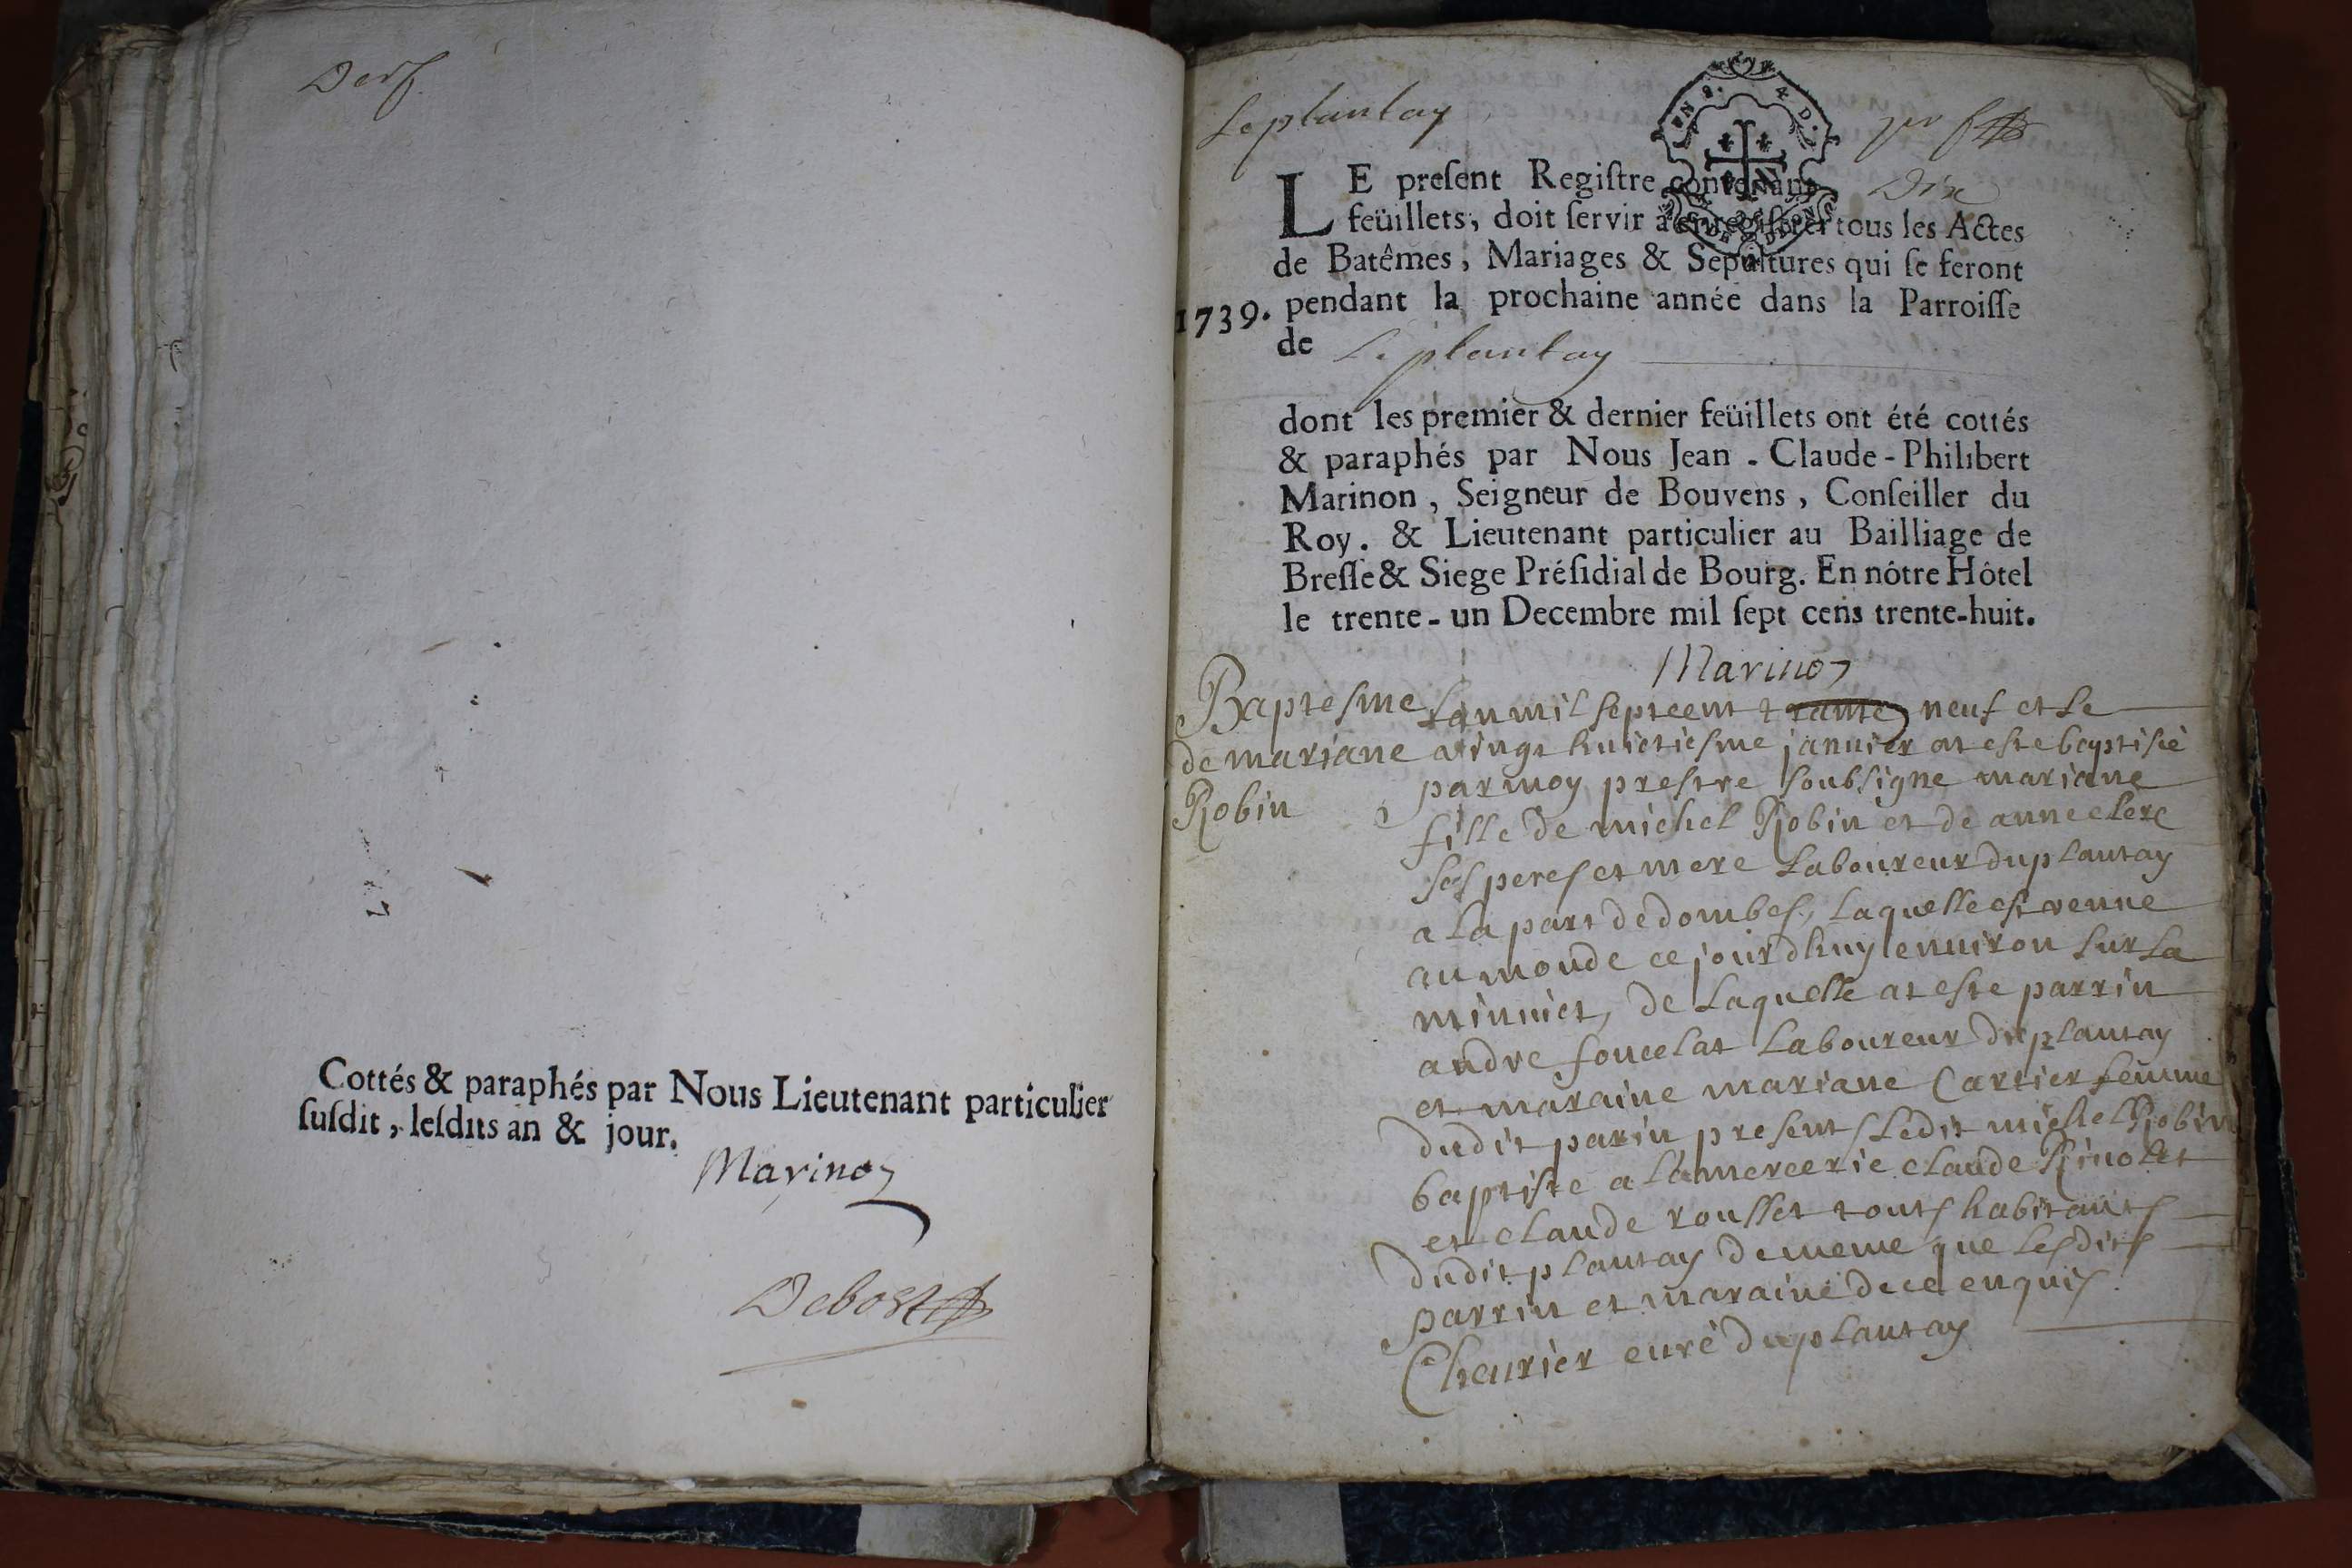 Derf.
Cottés & paraphés par Nous Lieutenant particulier
ſuſdit, leſdits an & jour.
Marinon
Debost
Leplantay
GEN 8. 4 D.
LE preſent Regiſtre contenant Dix
feüillets, doit ſervir à enregiſtrer tous les Actes
de Batêmes, Mariages & Sepultures qui ſe feront
1739. pendant la prochaine année dans la Parroiſſe
de Le plantay
dont les premier & dernier feüillets ont été cottés
& paraphés par Nous Jean - Claude - Philibert
Marinon, Seigneur de Bouvens, Conſeiller du
Roy. & Lieutenant particulier au Bailliage de
Breſſe & Siege Préſidial de Bourg. En nôtre Hôtel
le trente-un Decembre mil ſept cens trente-huit.
Marinon
Baptesme
de mariane
Robin
Lan mil septcent trante neuf et le
vingt huictiesme januier at este baptisè
par moy prestre soubsigne mariane
fille de michel Robin et de anne clerc
ses peres et mere Laboureur duplantay
a la part de dombes, laquelle est venue
au monde ce jourdhuy enuiron sur la
minuict, de laquelle at este parrin
andre foucelat Laboureur duplantay
et maraine mariane Cartier femme
dudit parin presents ledit michel Robin
baptiste a lamercerie claude Rinolet
et claude rousset touts habitants
dudit plantay de meme que lesdits
parrin et maraine de ce enquis.
Cheurier curè duplantay